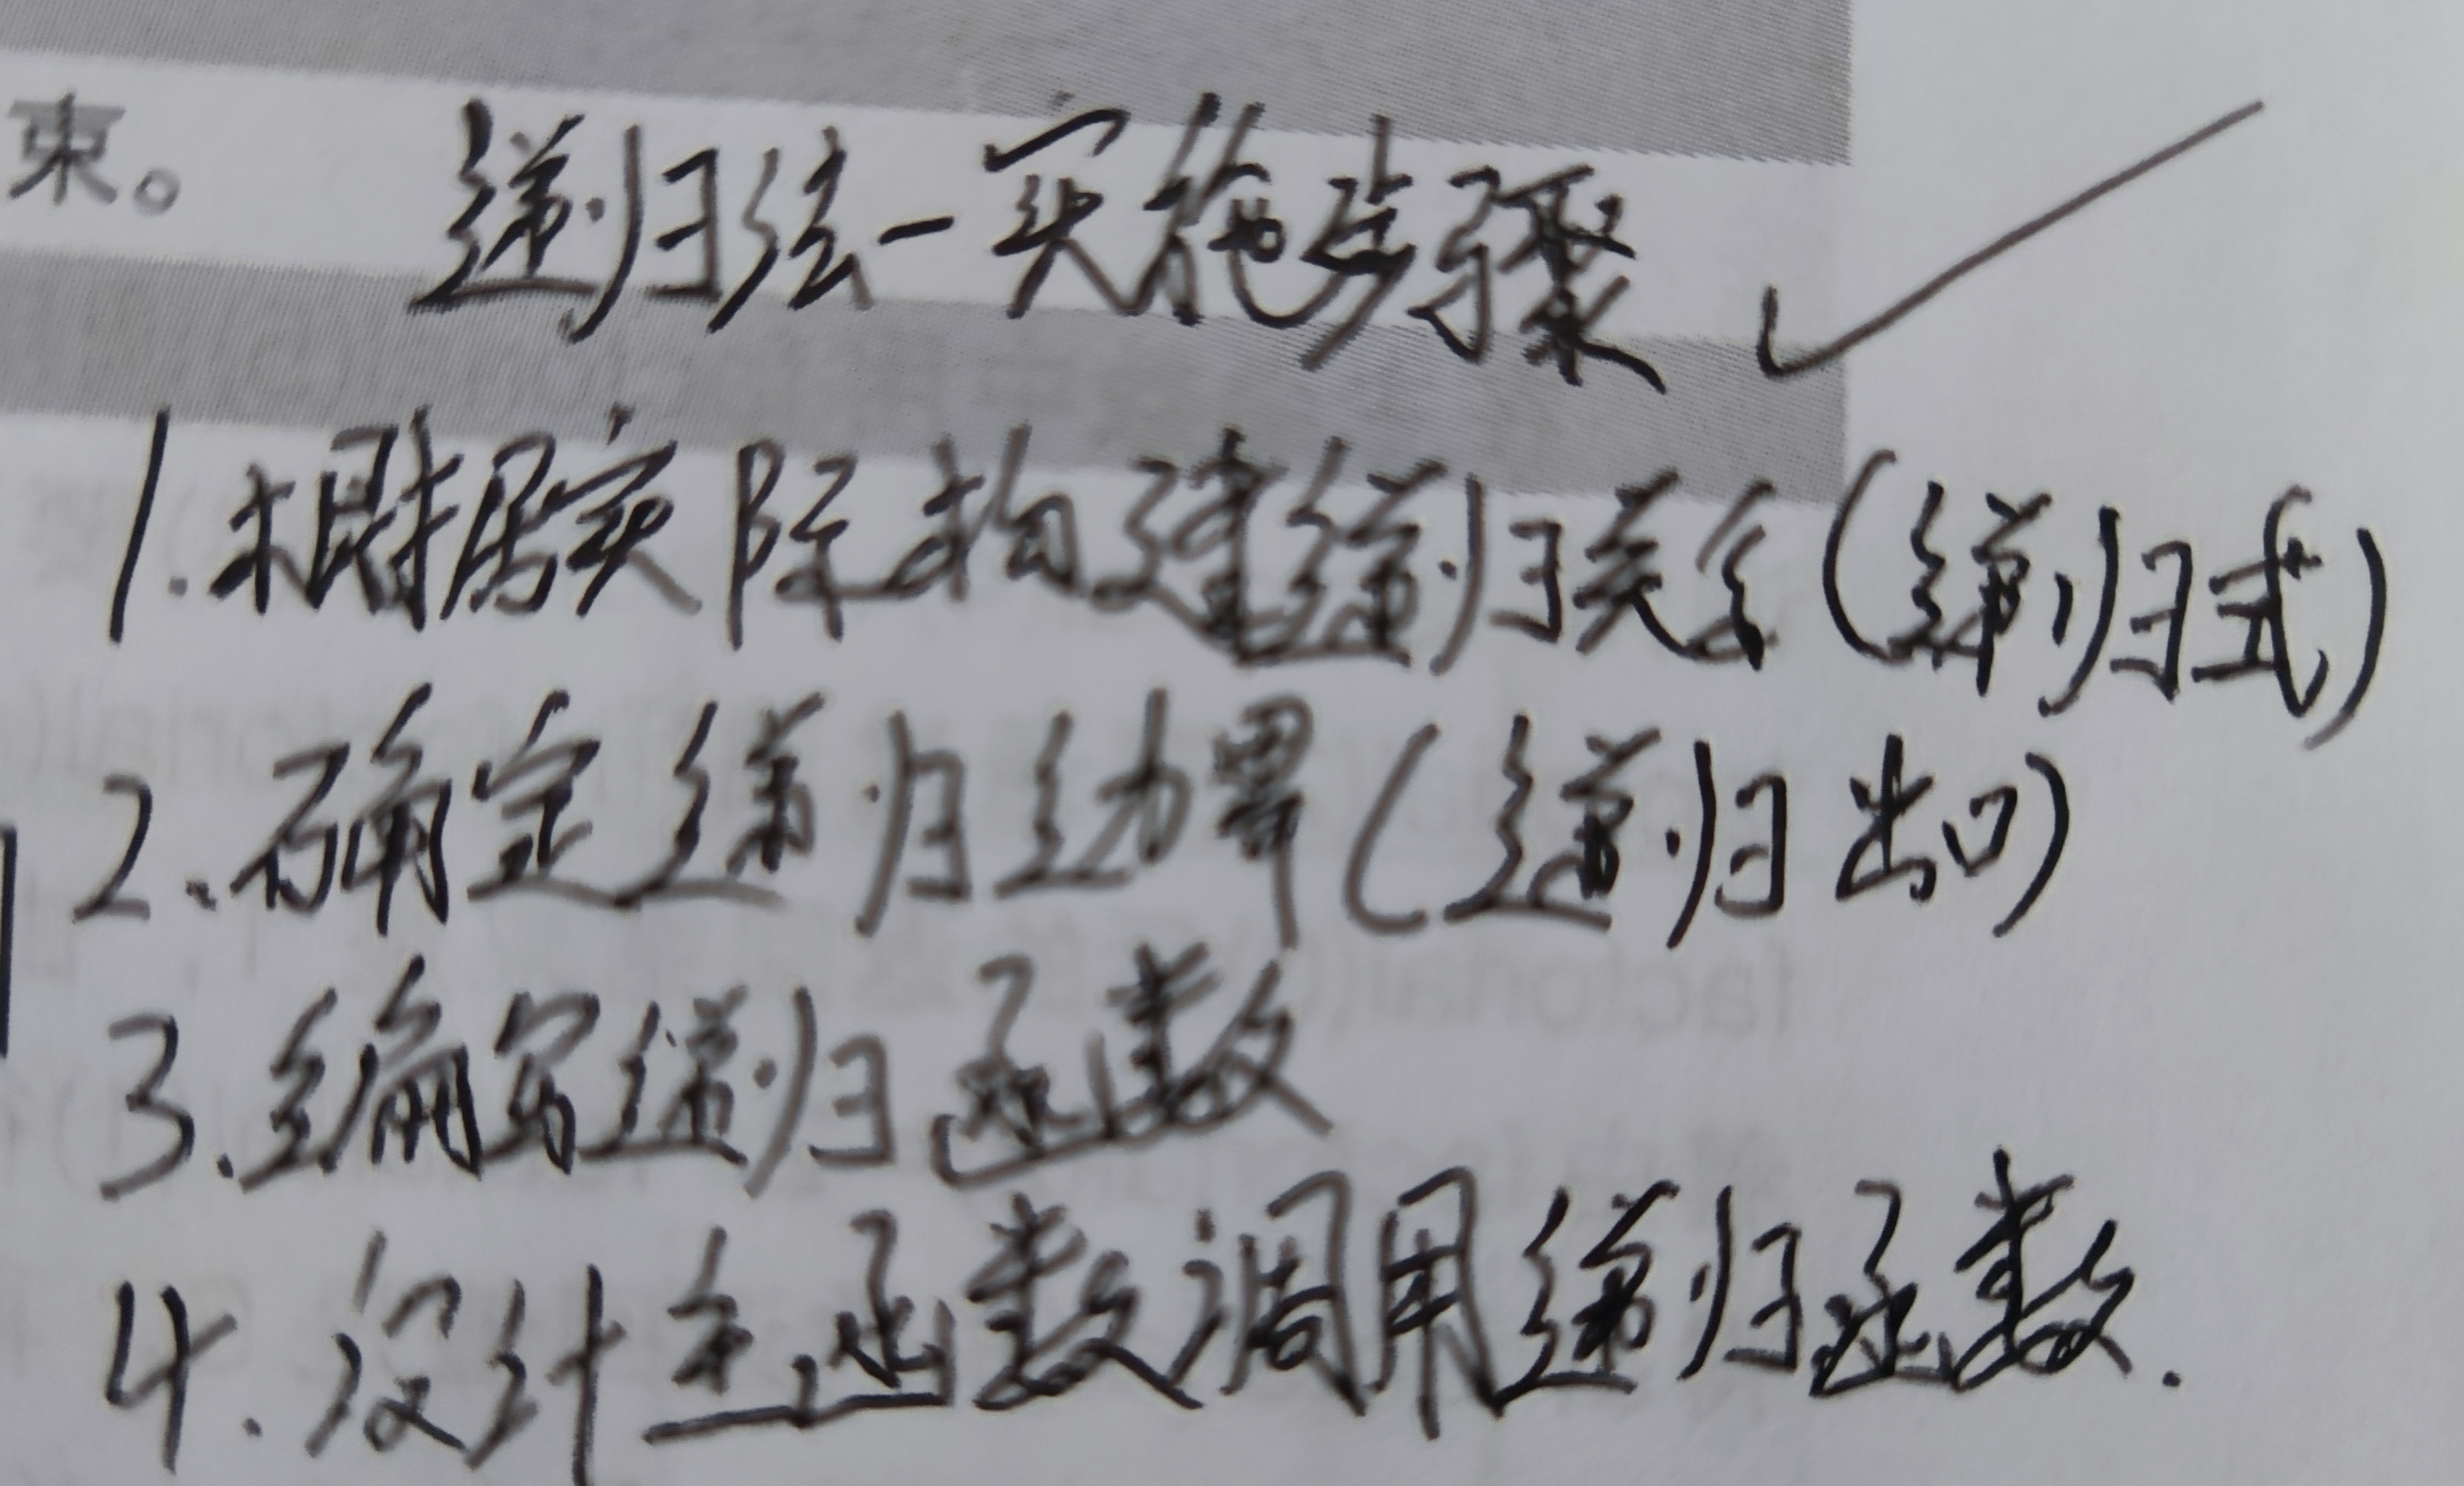 束。
递归法-实施步骤
1.根据实际构建递归关系(递归式)
2.确定递归边界(递归出口)
3.编写递归函数
4.设计主函数调用递归函数.